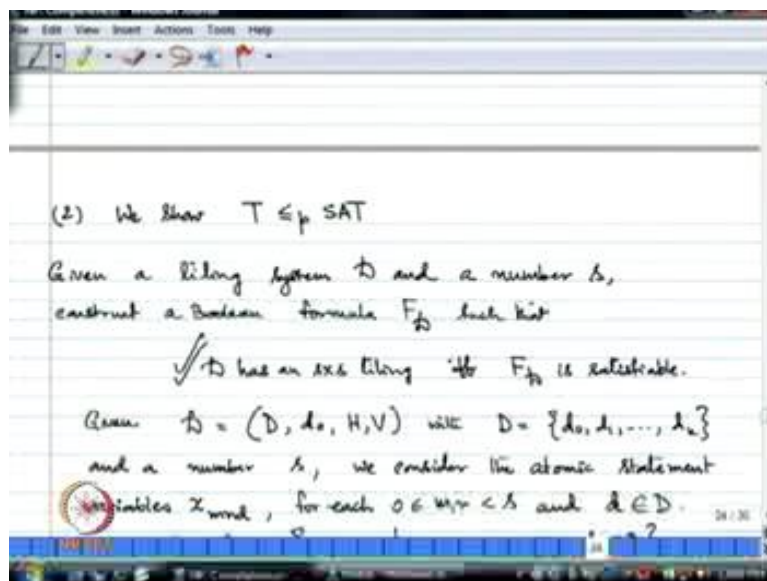 File Edit View Insert Actions Tools Help
(2) We show T ≤p SAT
Given a tiling system 𝔇 and a number s,
construct a Boolean formula F𝔇 such that
𝔇 has an sxs tiling iff F𝔇 is satisfiable.
Given 𝔇 = (D, d₀, H, V) with D = {d₀, d₁, ..., dₖ}
and a number s, we consider the atomic statement
variables xₘₙd, for each 0 ≤ m,n < s and d ∈ D.
24 / 30